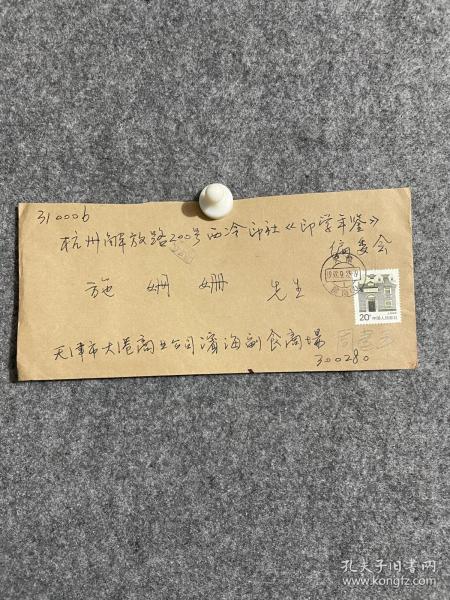 310006
杭州解放路200号西冷印社《印学年鉴》
编委会
施姗姗 先生
20分 中国人民邮政
天津市大港商业公司滨海副食商場
300280
孔夫子旧书网
www.kongfz.com